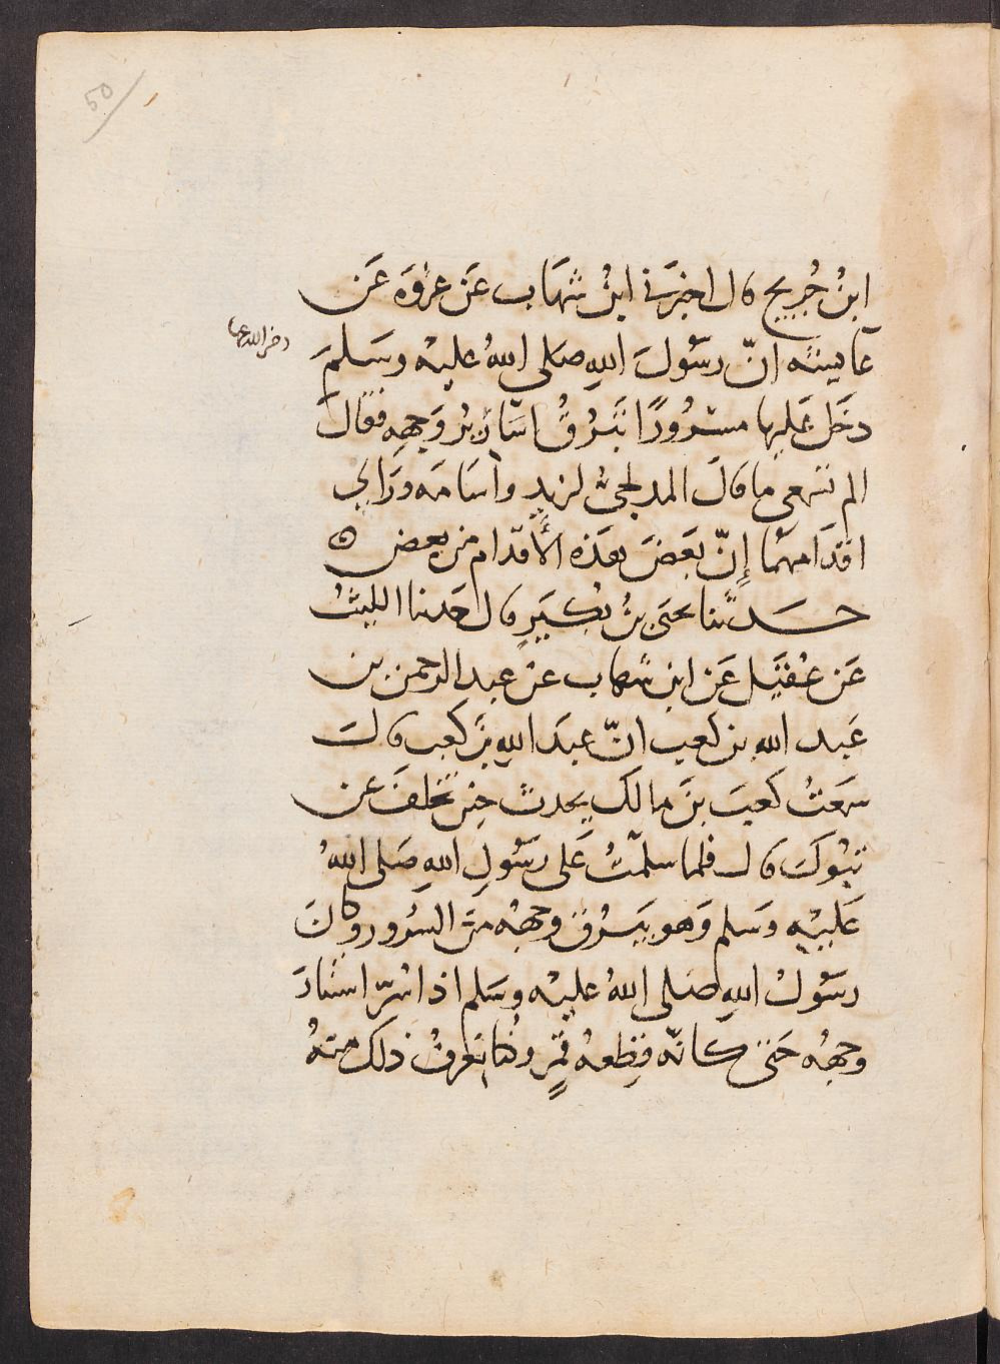 50
ابنُ جُريجٍ قال اخبرَني ابنُ شهَاب عَن عروَة عَن
عايشة انّ رسُولَ اللهِ صَلى اللهُ عليْه وسَلمَ
رضى الله عنها
دخَل عَليها مسْرُورًا تَبرُقُ اسَارِيرُ وَجهِه فقالَ
الم تسمعى ما قالَ المدلجىُّ لزيدٍ واسَامَه وراى
اقدَامهمَا إِنّ بعَضَ هذه الأَقدام من بعض ه
حــدثنا يحيَى بنُ بُكَيرٍ قال حَدثنا الليثُ
عَن عُقَيل عَن ابن شهاب عن عبد الرحمن بن
عَبد الله بن كعب انّ عبدَ اللهِ بنَ كعب قالَ
سمعَتُ كعبَ بنَ مالك يحدثُ حِين تخلفَ عن
تبُوكَ قال فلما سلمّتُ عَلى رسُولِ اللهِ صَلى اللهُ
عَليْهِ وَسَلم وَهو يَبرُق وجههُ منَ السرُور وكانَ
رسُولُ اللهِ صَلى اللهُ عليْه وسَلم اذا سُرّ استنارَ
وجههُ حَتى كانّه قِطعهُ قَمَرٍ وكنا نعرفُ ذلك منهُ